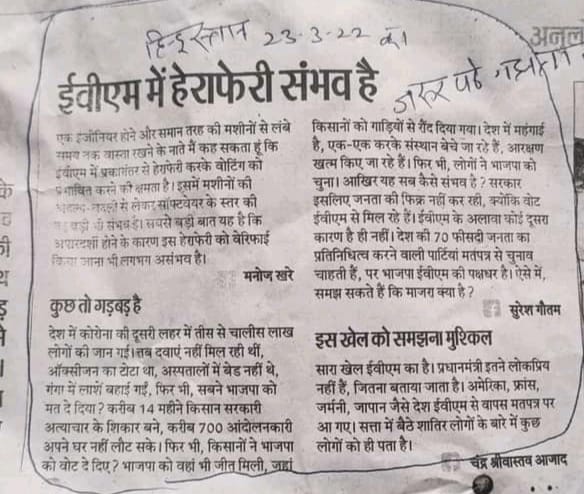 हिन्दुस्तान 23-3-22 का
जरूर पढे
ईवीएम में हेराफेरी संभव है
एक इंजीनियर होने और समान तरह की मशीनों से लंबे
समय तक वास्ता रखने के नाते मैं कह सकता हूं कि
ईवीएम में प्रकारांतर से हेराफेरी करके वोटिंग को
प्रभावित करने की क्षमता है। इसमें मशीनों की
अदला-बदली से लेकर सॉफ्टवेयर के स्तर की
संभव है। सबसे बड़ी बात यह है कि
अपारदर्शी होने के कारण इस हेराफेरी को वेरिफाई
किया जाना भी लगभग असंभव है।
मनोज खरे
कुछ तो गड़बड़ है
देश में कोरोना की दूसरी लहर में तीस से चालीस लाख
लोगों की जान गई। तब दवाएं नहीं मिल रही थीं,
ऑक्सीजन का टोटा था, अस्पतालों में बेड नहीं थे,
गंगा में लाशें बहाई गईं, फिर भी, सबने भाजपा को
मत दे दिया? करीब 14 महीने किसान सरकारी
अत्याचार के शिकार बने, करीब 700 आंदोलनकारी
अपने घर नहीं लौट सके। फिर भी, किसानों ने भाजपा
को वोट दे दिए? भाजपा को वहां भी जीत मिली, जहां
किसानों को गाड़ियों से रौंद दिया गया। देश में महंगाई
है, एक-एक करके संस्थान बेचे जा रहे हैं, आरक्षण
खत्म किए जा रहे हैं। फिर भी, लोगों ने भाजपा को
चुना। आखिर यह सब कैसे संभव है? सरकार
इसलिए जनता की फिक्र नहीं कर रही, क्योंकि वोट
ईवीएम से मिल रहे हैं। ईवीएम के अलावा कोई दूसरा
कारण है ही नहीं। देश की 70 फीसदी जनता का
प्रतिनिधित्व करने वाली पार्टियां मतपत्र से चुनाव
चाहती हैं, पर भाजपा ईवीएम की पक्षधर है। ऐसे में,
समझ सकते हैं कि माजरा क्या है?
सुरेश गौतम
इस खेल को समझना मुश्किल
सारा खेल ईवीएम का है। प्रधानमंत्री इतने लोकप्रिय
नहीं हैं, जितना बताया जाता है। अमेरिका, फ्रांस,
जर्मनी, जापान जैसे देश ईवीएम से वापस मतपत्र पर
आ गए। सत्ता में बैठे शातिर लोगों के बारे में कुछ
लोगों को ही पता है।
चंद्र श्रीवास्तव आजाद
अनुल